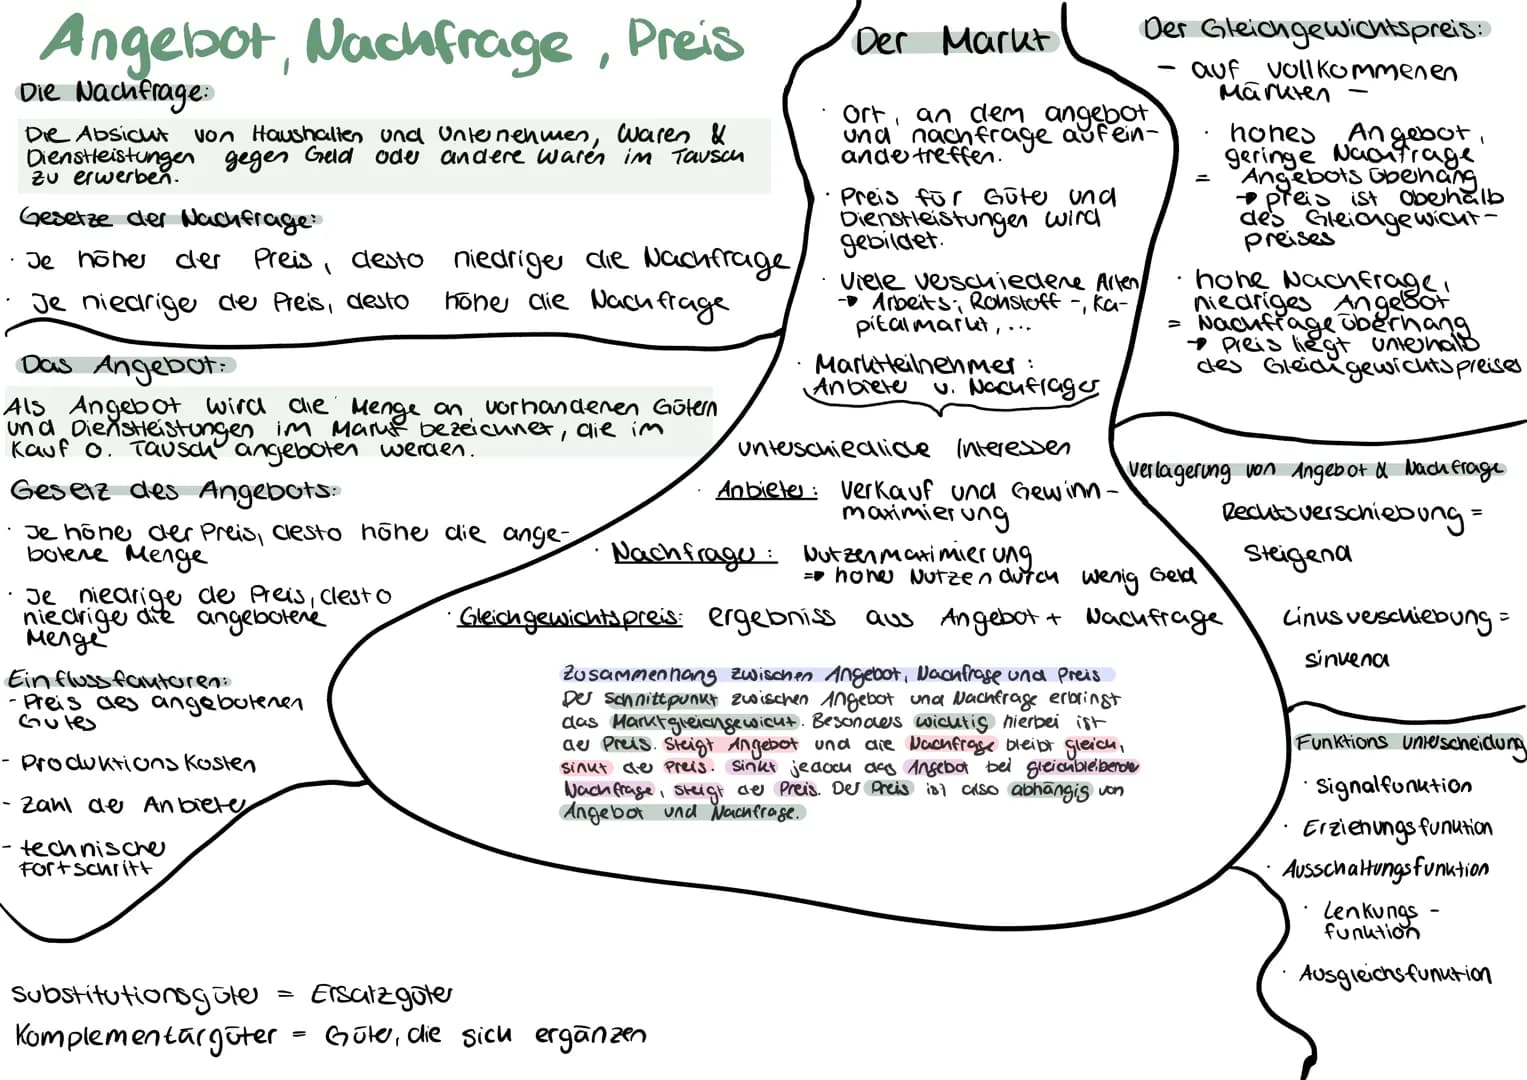 Angebot, Nachfrage, Preis
Die Nachfrage:
Die Absicht von Haushalten und Unternehmen, Waren &
Dienstleistungen gegen Geld oder andere Waren im Tausch
zu erwerben.
Gesetze der Nachfrage:
· Je höher der Preis, desto niedriger die Nachfrage
· Je niedriger der Preis, desto höher die Nachfrage
Das Angebot:
Als Angebot wird die Menge an vorhandenen Gütern
und Dienstleistungen im Markt bezeichnet, die im
Kauf o. Tausch angeboten werden.
Gesetz des Angebots:
· Je höher der Preis, desto höher die ange-
botene Menge
· Je niedriger der Preis, desto
niedriger die angebotene
Menge
Einflussfaktoren:
- Preis des angebotenen
Gutes
- Produktionskosten
- Zahl der Anbieter
- technischer
Fortschritt
Substitutionsgüter = Ersatzgüter
Komplementärgüter = Güter, die sich ergänzen
Der Markt
· Ort, an dem angebot
und nachfrage aufein-
ander treffen.
· Preis für Güter und
Dienstleistungen wird
gebildet.
· Viele verschiedene Arten
→ Arbeits-, Rohstoff-, Ka-
pitalmarkt, ...
· Marktteilnehmer:
Anbieter u. Nachfrager
unterschiedliche Interessen
· Anbieter: Verkauf und Gewinn-
maximierung
· Nachfrager: Nutzenmaximierung
⇒ hoher Nutzen durch wenig Geld
· Gleichgewichtspreis: ergebniss aus Angebot + Nachfrage
Zusammenhang zwischen Angebot, Nachfrage und Preis
Der Schnittpunkt zwischen Angebot und Nachfrage erbringt
das Marktgleichgewicht. Besonders wichtig hierbei ist
der Preis. Steigt Angebot und die Nachfrage bleibt gleich,
sinkt der Preis. Sinkt jedoch das Angebot bei gleichbleibender
Nachfrage, steigt der Preis. Der Preis ist also abhängig von
Angebot und Nachfrage.
Der Gleichgewichtspreis:
- auf vollkommenen
Märkten -
· hohes Angebot,
geringe Nachfrage
= Angebotsüberhang
→ preis ist oberhalb
des Gleichgewicht-
preises
· hohe Nachfrage,
niedriges Angebot
= Nachfrageüberhang
→ Preis liegt unterhalb
des Gleichgewichtspreises
Verlagerung von Angebot & Nachfrage
Rechtsverschiebung =
Steigend
Linksverschiebung =
sinkend
Funktions unterscheidung
· Signalfunktion
· Erziehungsfunktion
· Ausschaltungsfunktion
· Lenkungs-
funktion
· Ausgleichsfunktion